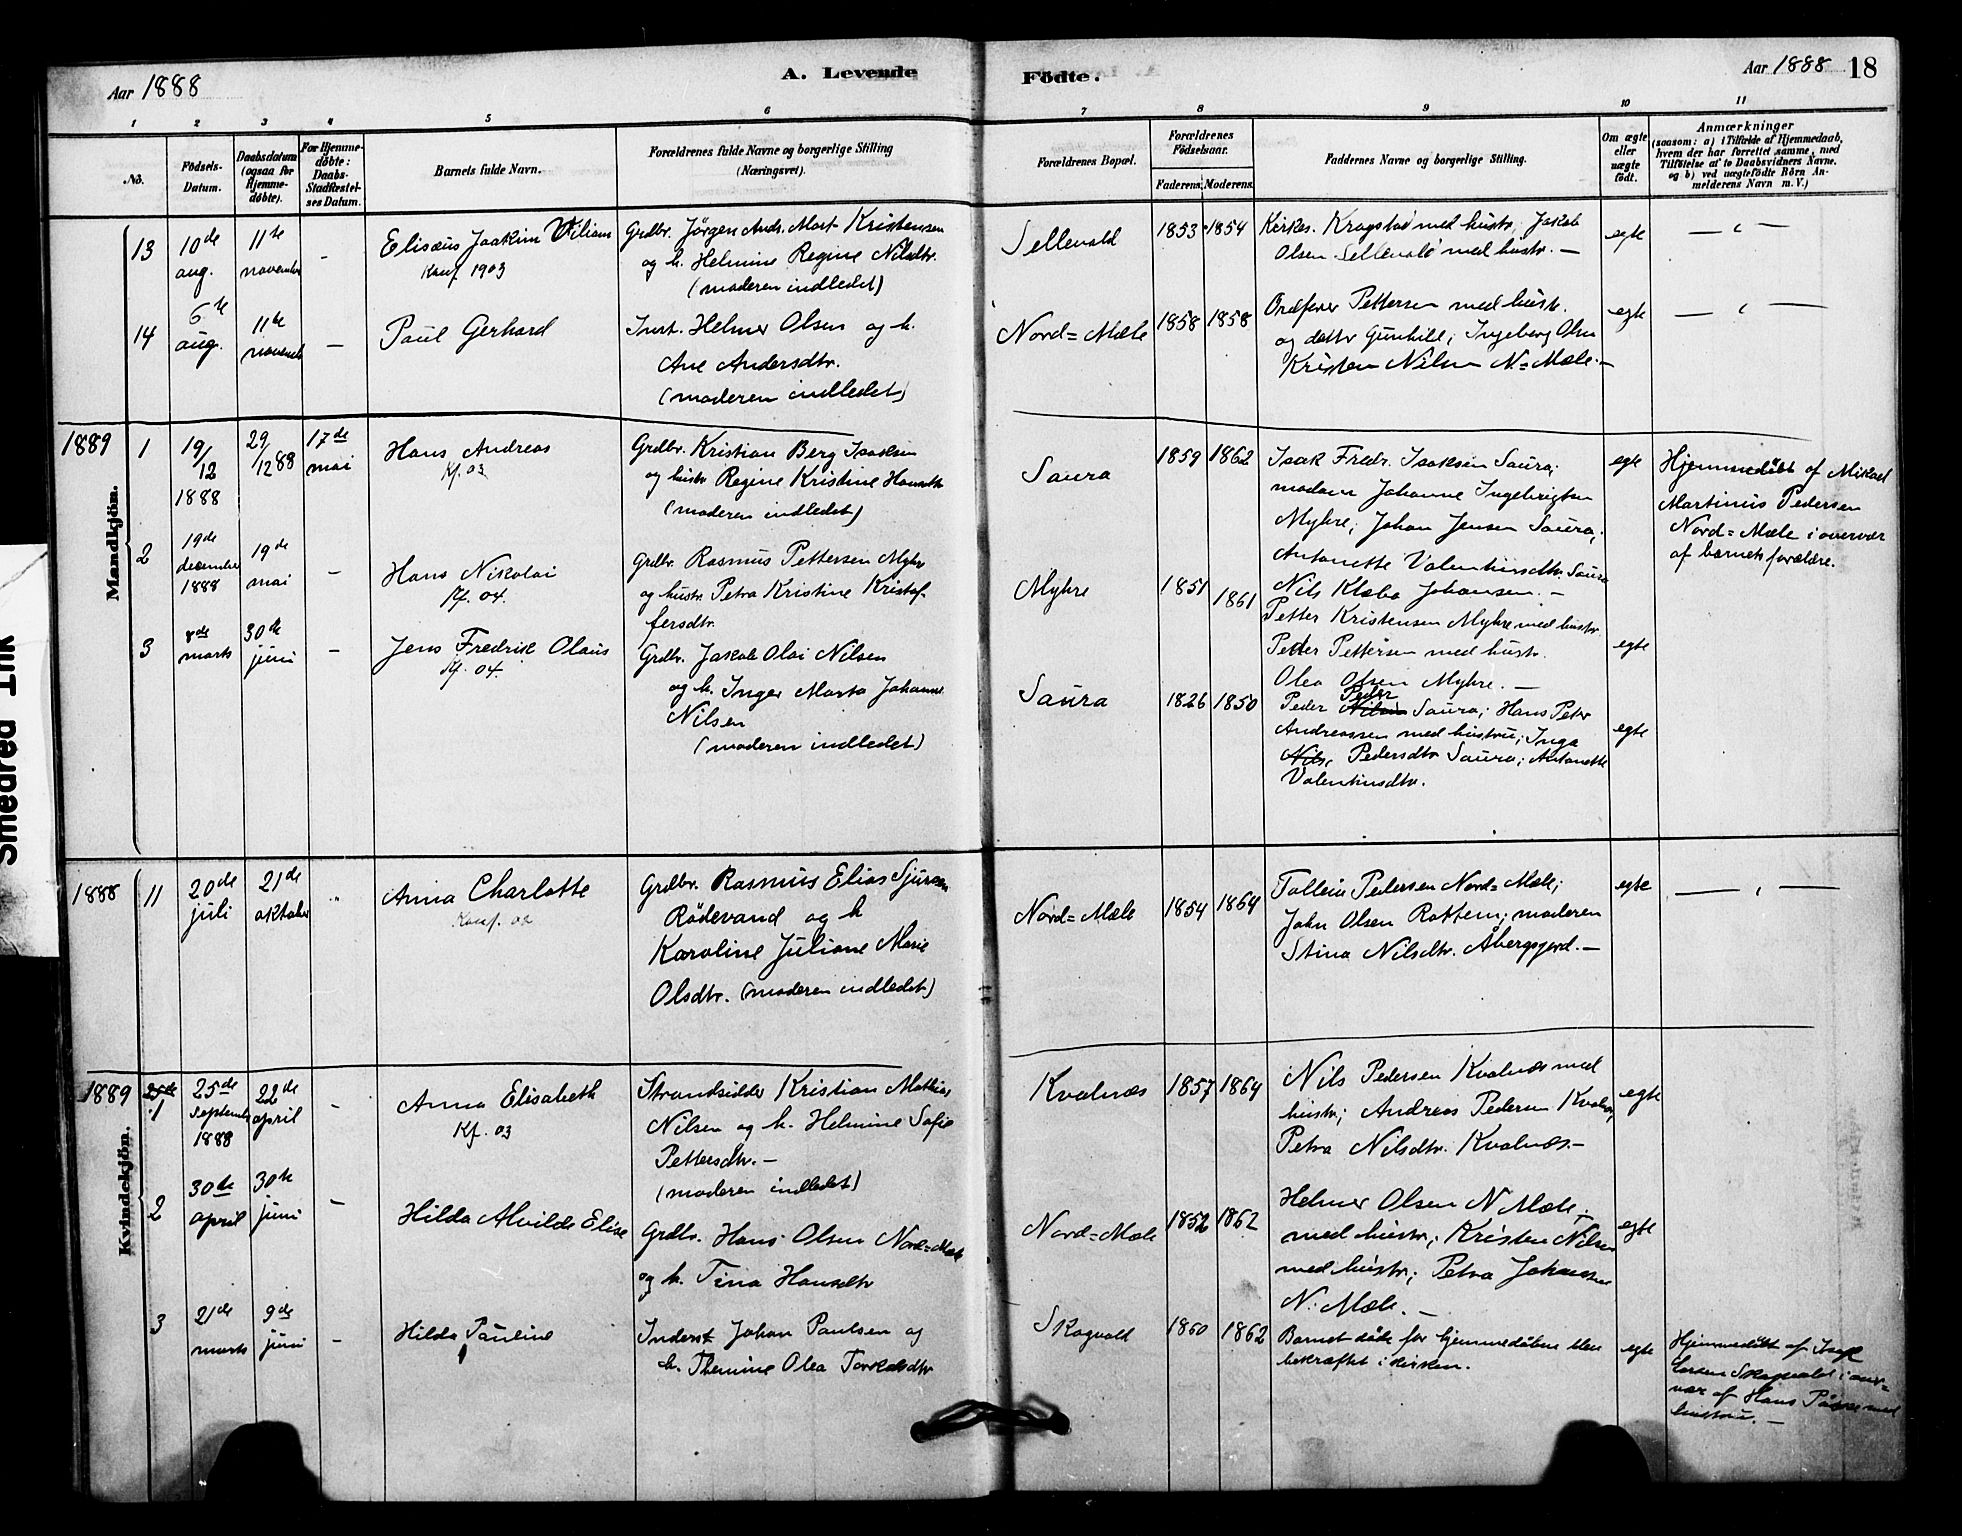 Aar 1888
A. Levende
Födte.
Aar 1888 18
1 2 3 4 5 6 7 8 9 10 11
No.
Födsels-
Datum.
Daabsdatum
(ogsaa for
Hjemme-
döbte).
For Hjemme-
döbte:
Daabs-
Stadfæstel-
ses Datum.
Barnets fulde Navn.
Forældrenes fulde Navne og borgerlige Stilling
(Næringsvei).
Forældrenes Bopæl.
Forældrenes
Födselsaar.
Faderens. Moderens.
Faddernes Navne og borgerlige Stilling.
Om ægte
eller
uægte
födt.
Anmærkninger
(saasom: a) i Tilfælde af Hjemmedaab,
hvem der har forrettet samme, med
Tilföielse af to Daabsvidners Navne,
og b) ved uægtefödte Börn An-
melderens Navn m. V.)
Mandkjön.
13
10de
aug.
11te
november
-
Elisæus Joakim Viliam
Konf. 1903
Grdbr. Jörgen Andr. Mart. Kristensen
og h. Helmine Regine Nilsdtr.
(moderen indledet)
Sellevold
1853 1854
Kirkes. Kragstad med hustr; Jakob
Olsen Sellevold med hustr. —
egte
14
6te
aug.
11te
november
—
Paul Gerhard
Inst. Helmer Olsen og h.
Ane Andersdtr.
(moderen indledet)
Nord=Mæle
1858 1858
Ordförer Pettersen med hustr.
og dattr Gunhild; Ingeborg Olsen
Kristen Nilsen N=Mæle. —
egte
1889
1
19/12
1888
29/12 88
17de
mai
Hans Andreas
Kf. 03
Grdbr. Kristian Berg Isaksen
og hustr Regine Kristine Hansdtr
(moderen indledet)
Saura
1859 1862
Isak Fredr. Isaksen Saura;
madam Johanne Ingebrigtsen
Myhre; Johan Jensen Saura;
Antonette Valentinsdtr. Saura
egte
Hjemmedöbt af Mikael
Martinus Pedersen
Nord=Mæle i overvær
af barnets forældre.
2
19de
december
1888
19de
mai
-
Hans Nikolai
Kf. 04.
Grdbr. Rasmus Pettersen Myhre
og hustr. Petra Kristine Kristof-
fersdtr.
Myhre
1851 1861
Nils Klæbo Johansen. —
Petter Kristensen Myhre med hustr.
Peder Pettersen med hustr.
Olea Olsen Myhre. —
egte
3
8de
marts
30de
juni
-
Jens Fredrik Olaus
Kf. 04.
Grdbr. Jakob Olai Nilsen
og h. Inger Marta Johanne
Nilsen
(moderen indledet)
Saura
1826 1850
Peder Peder Saura; Hans Peter
Andreassen med hustru; Inga
Nils, Pedersdtr Saura; Antonette
Valentinsdtr.
egte
Kvindekjön.
1888
11
20de
juli
21de
oktober
Anna Charlotte
Konf. 02
Grdbr. Rasmus Elias Sjursen
Rödevand og h
Karoline Juliane Marie
Olsdtr. (moderen indledet)
Nord=Mæle
1854 1864
Tollein Pedersen Nord=Mæle;
John Olsen Rottem; moderen
Stina Nilsdtr. Åbergsjord. —
egte
1889
25de
1
25de
September
1888
22de
april
-
Anna Elisabeth
Kf. 03
Strandsidder Kristian Mathias
Nilsen og h. Helmine Sofie
Pettersdtr. —
(moderen indledet)
Kvalnæs
1857 1864
Nils Pedersen Kvalnæs med
hustr; Andreas Pedersen Kvalnæs
Petra Nilsdtr. Kvalnæs. —
egte
2
30te
april
30te
juni
-
Hilda Alvilde Elise
Grdbr. Hans Olsen Nord=Mæle
og h. Tina Hansdtr
Nord=Mæle
1852 1862
Helmer Olsen N Mæle
med hustr; Kristen Nilsen
med hustr; Petra Johansen
N. Mæle. —
egte
3
21de
marts
9de
juni
-
Hilda Pauline
Inderst Johan Paulsen og
h. Themine Olea Torkelsdtr
Skogvold
1860 1862
Barnet döde för hjemmedåben blev
bekræftet i kirken.
egte
Hjemmedöbt af Isak
Larsen Skogvold i over=
vær af Hans med
hustru. —
Smedred Ink